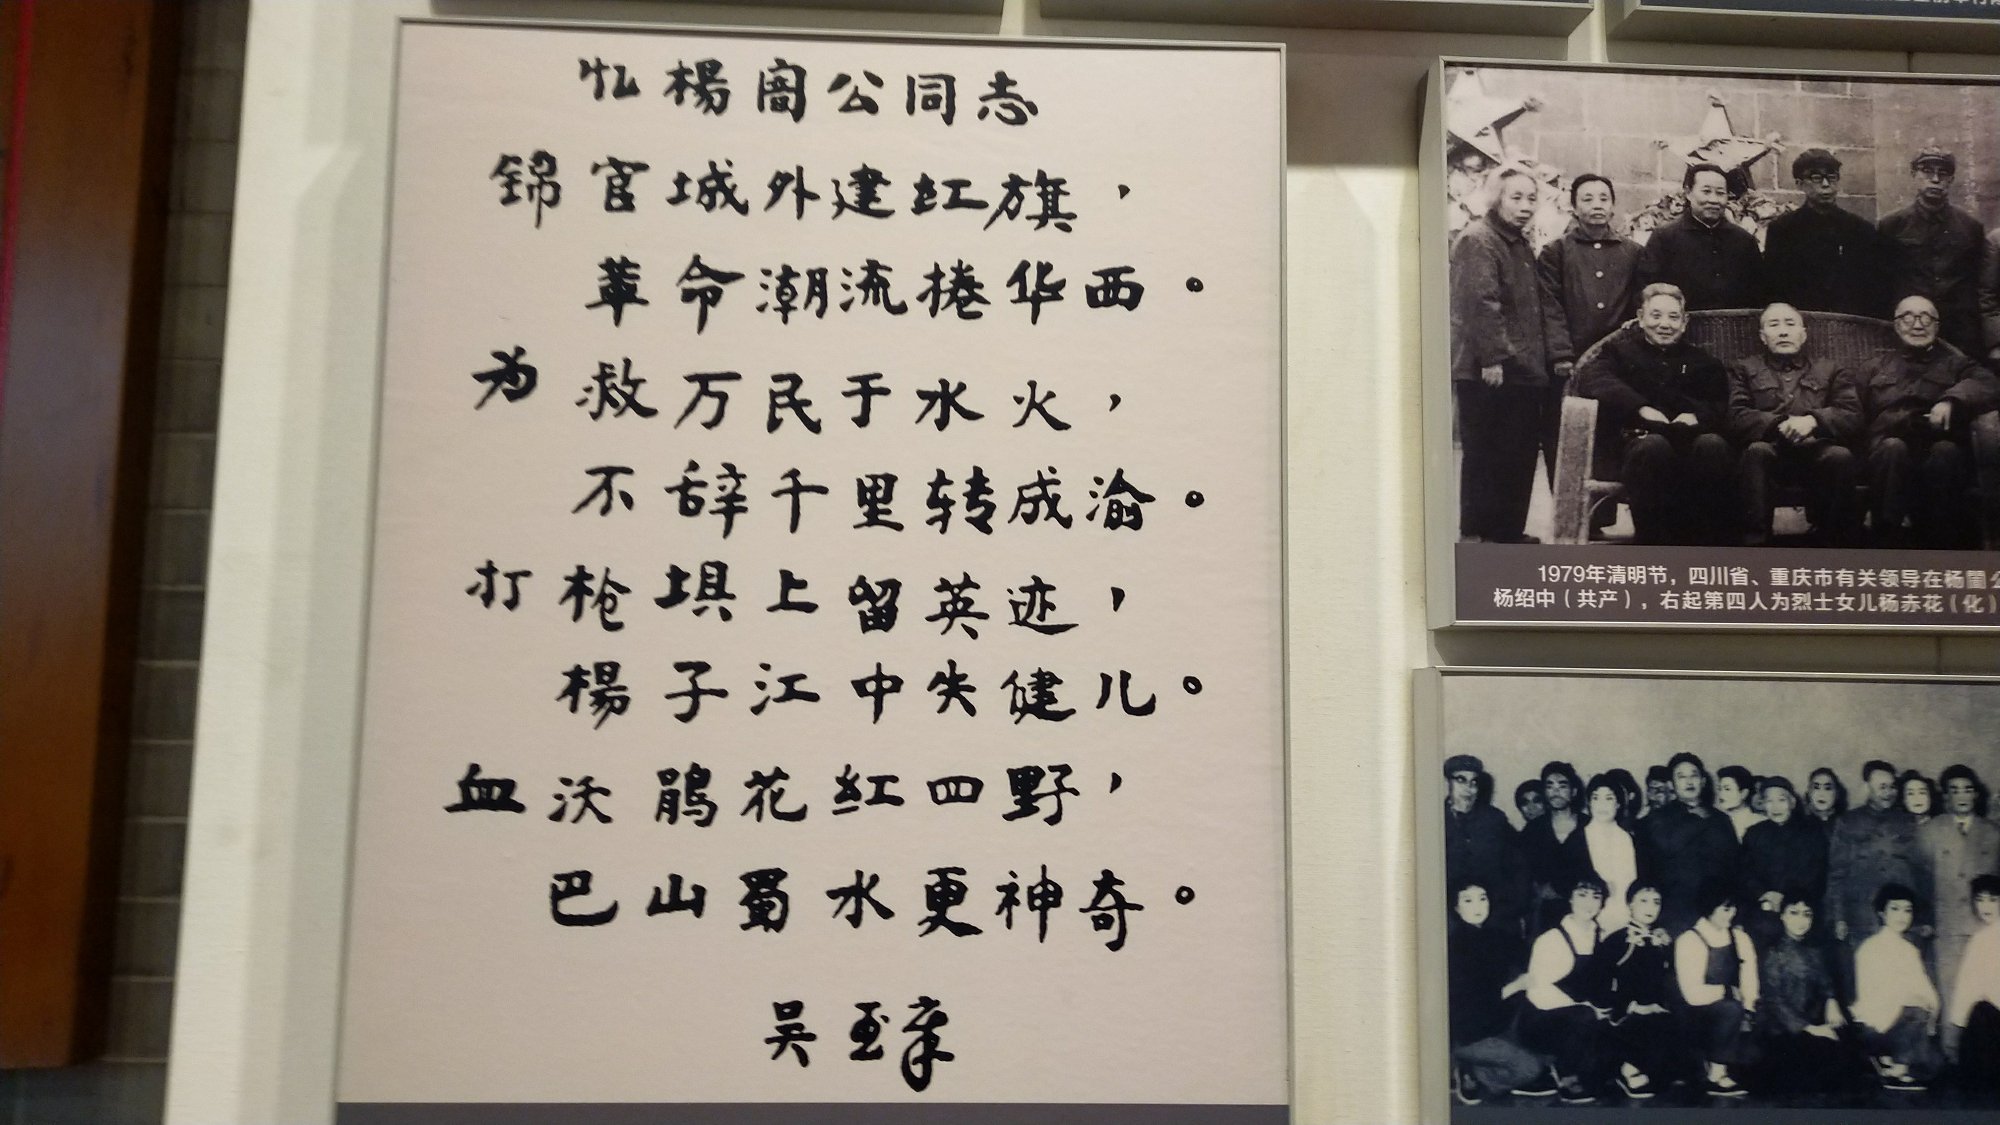 忆楊闇公同志
錦官城外建红旗，
革命潮流捲华西。
为救万民于水火，
不辞千里转成渝。
打枪埧上留英迹，
楊子江中失健儿。
血沃鹃花红四野，
巴山蜀水更神奇。
吴玉章
1979年清明节，四川省、重庆市有关领导在杨闇公
杨绍中（共产），右起第四人为烈士女儿杨赤花（化）